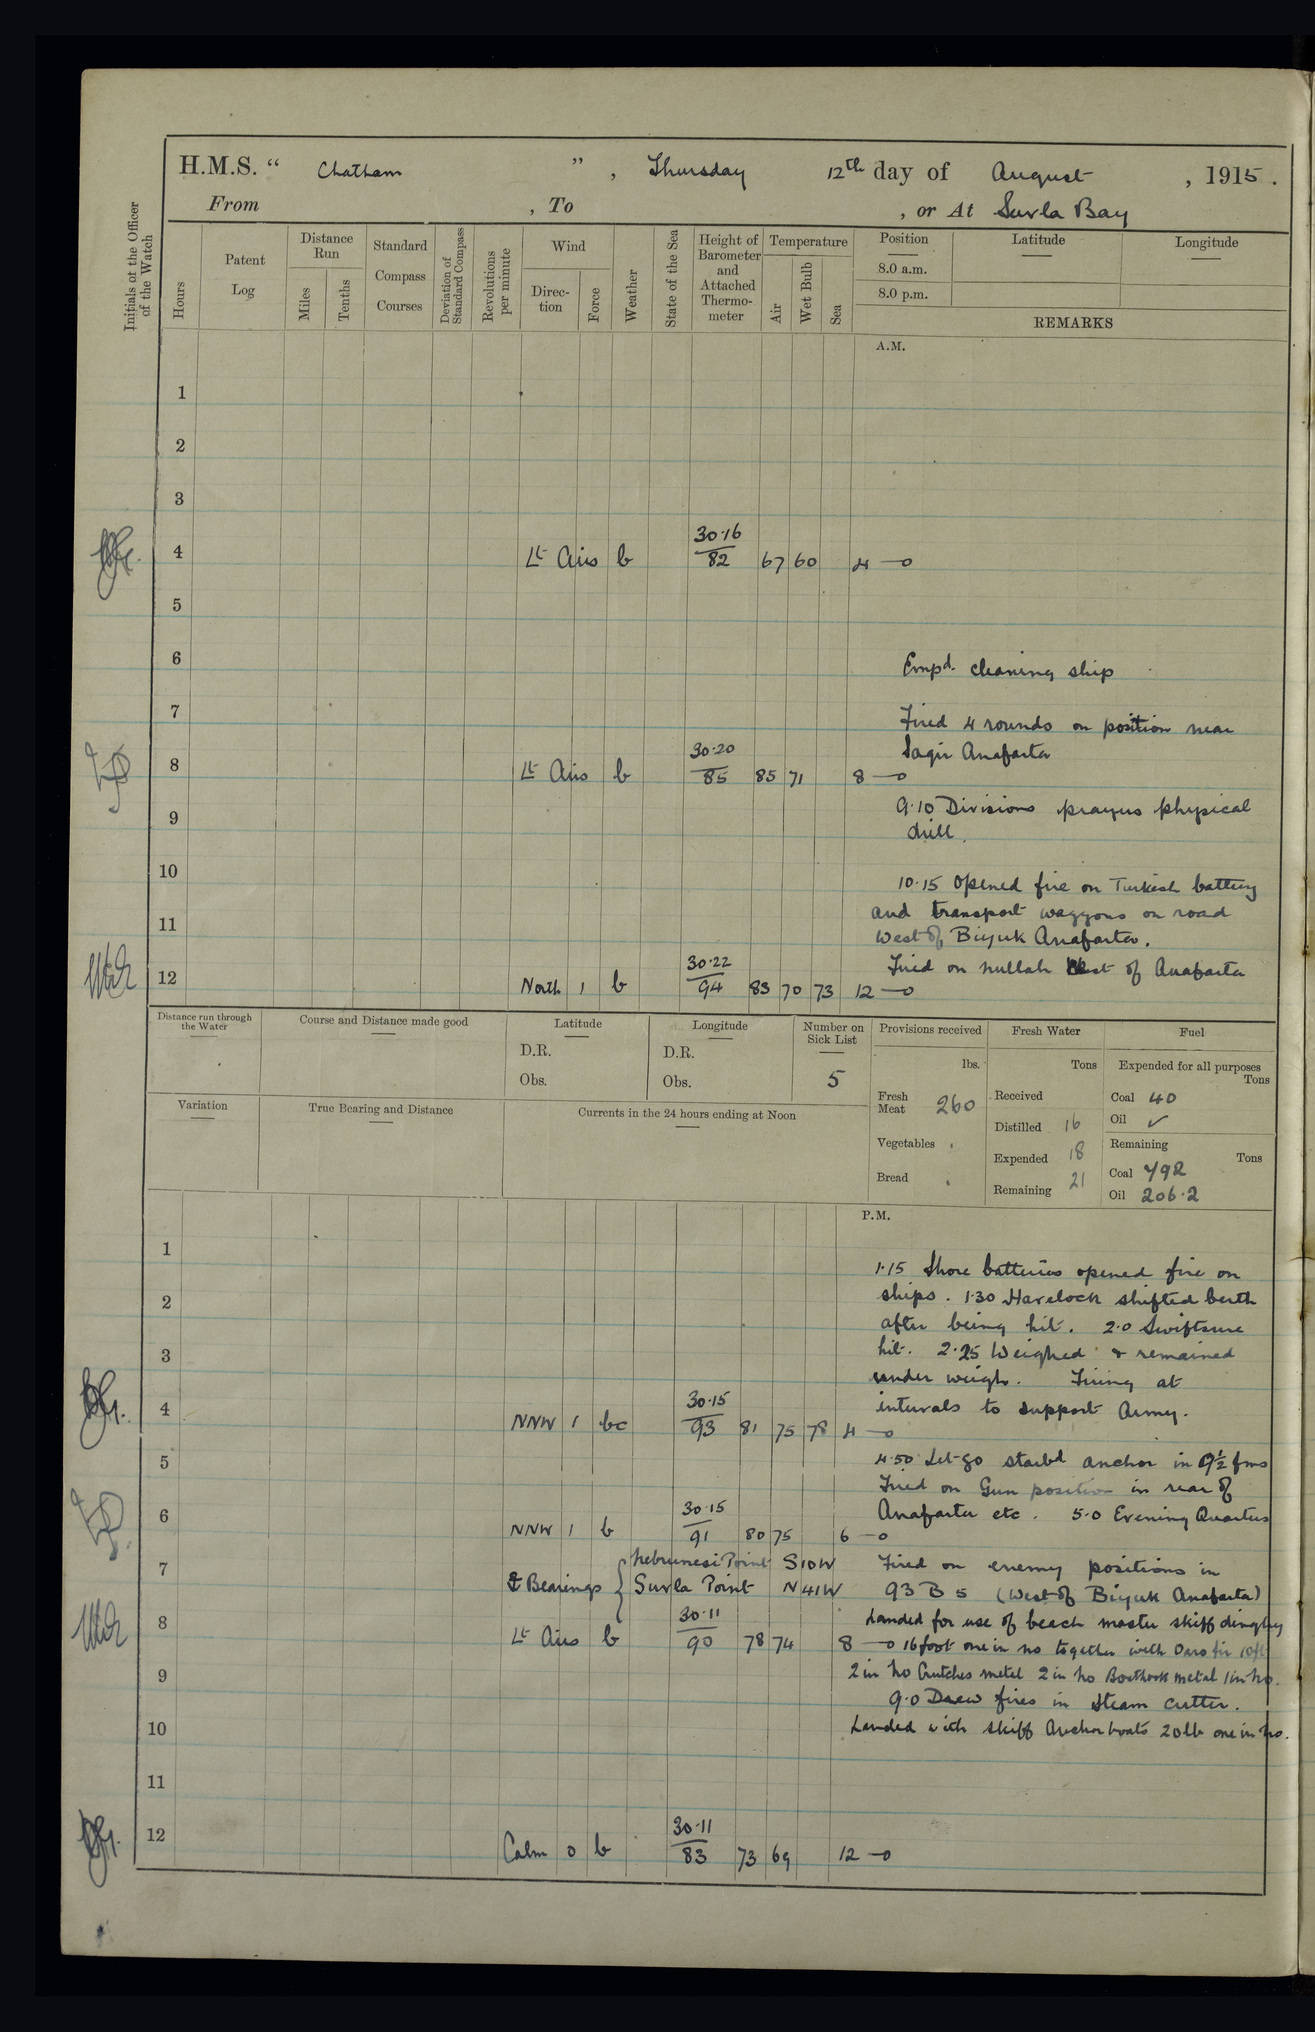 H.M.S. “ Chatham ” , Thursday 12th day of August , 1915 .
From , To , or At Suvla Bay
Initials of the Officer of the Watch
Hours
Patent Log
Distance Run
Miles
Tenths
Standard Compass Courses
Deviation of Standard Compass
Revolutions per minute
Wind
Direc-tion
Force
Weather
State of the Sea
Height of Barometer and Attached Thermo-meter
Temperature
Air
Wet Bulb
Sea
Position
8.0 a.m.
8.0 p.m.
Latitude
Longitude
REMARKS
A.M.
1
2
3
4 Lt Airs b 30.16/82 67 60 4 —o
5
6 Empd. cleaning ship
7 Fired 4 rounds on position near
Sagir Anafarta
8 Lt Airs b 30.20/85 85 71 8 —o
9.10 Divisions prayers physical
9 drill.
10 10.15 Opened fire on Turkish battery
and transport waggons on road
11 West of Biyuk Anafarta.
Fired on nullah West of Anafarta
12 North 1 b 30.22/94 83 70 73 12 —o
Distance run through the Water
Course and Distance made good
Latitude
D.R.
Obs.
Longitude
D.R.
Obs.
Number on Sick List
5
Provisions received
lbs.
Fresh Meat 260
Vegetables
Bread
Fresh Water
Tons
Received
Distilled 16
Expended 18
Remaining 21
Fuel
Expended for all purposes
Tons
Coal 40
Oil ✓
Remaining
Tons
Coal 792
Oil 206.2
Variation
True Bearing and Distance
Currents in the 24 hours ending at Noon
P.M.
1 1.15 Shore batteries opened fire on
2 ships. 1.30 Havelock shifted berth
after being hit. 2.0 Swiftsure
3 hit. 2.25 Weighed & remained
under weigh. Firing at
4 intervals to support Army.
NNW 1 bc 30.15/93 81 75 78 4 —o
5 4.50 Let go starbd anchor in 9½ fms
Fired on Gun position in rear of
6 Anafarta etc. 5.0 Evening Quarters
NNW 1 b 30.15/91 80 75 6 —o
7 Nebrunesi Point S10W Fired on enemy positions in
Bearings { Suvla Point N41W 93 B 5 (West of Biyuk Anafarta)
8 Landed for use of beach master skiff dinghy
Lt Airs b 30.11/90 78 74 8 —o 16 foot one in no together with Oars fir 10ft
9 2 in No Crutches metal 2 in No Boathook metal 1 in No.
9.0 Drew fires in steam cutter.
10 Landed with skiff Anchor boats 20lb one in No.
11
12 Calm 0 b 30.11/83 73 69 12 —o